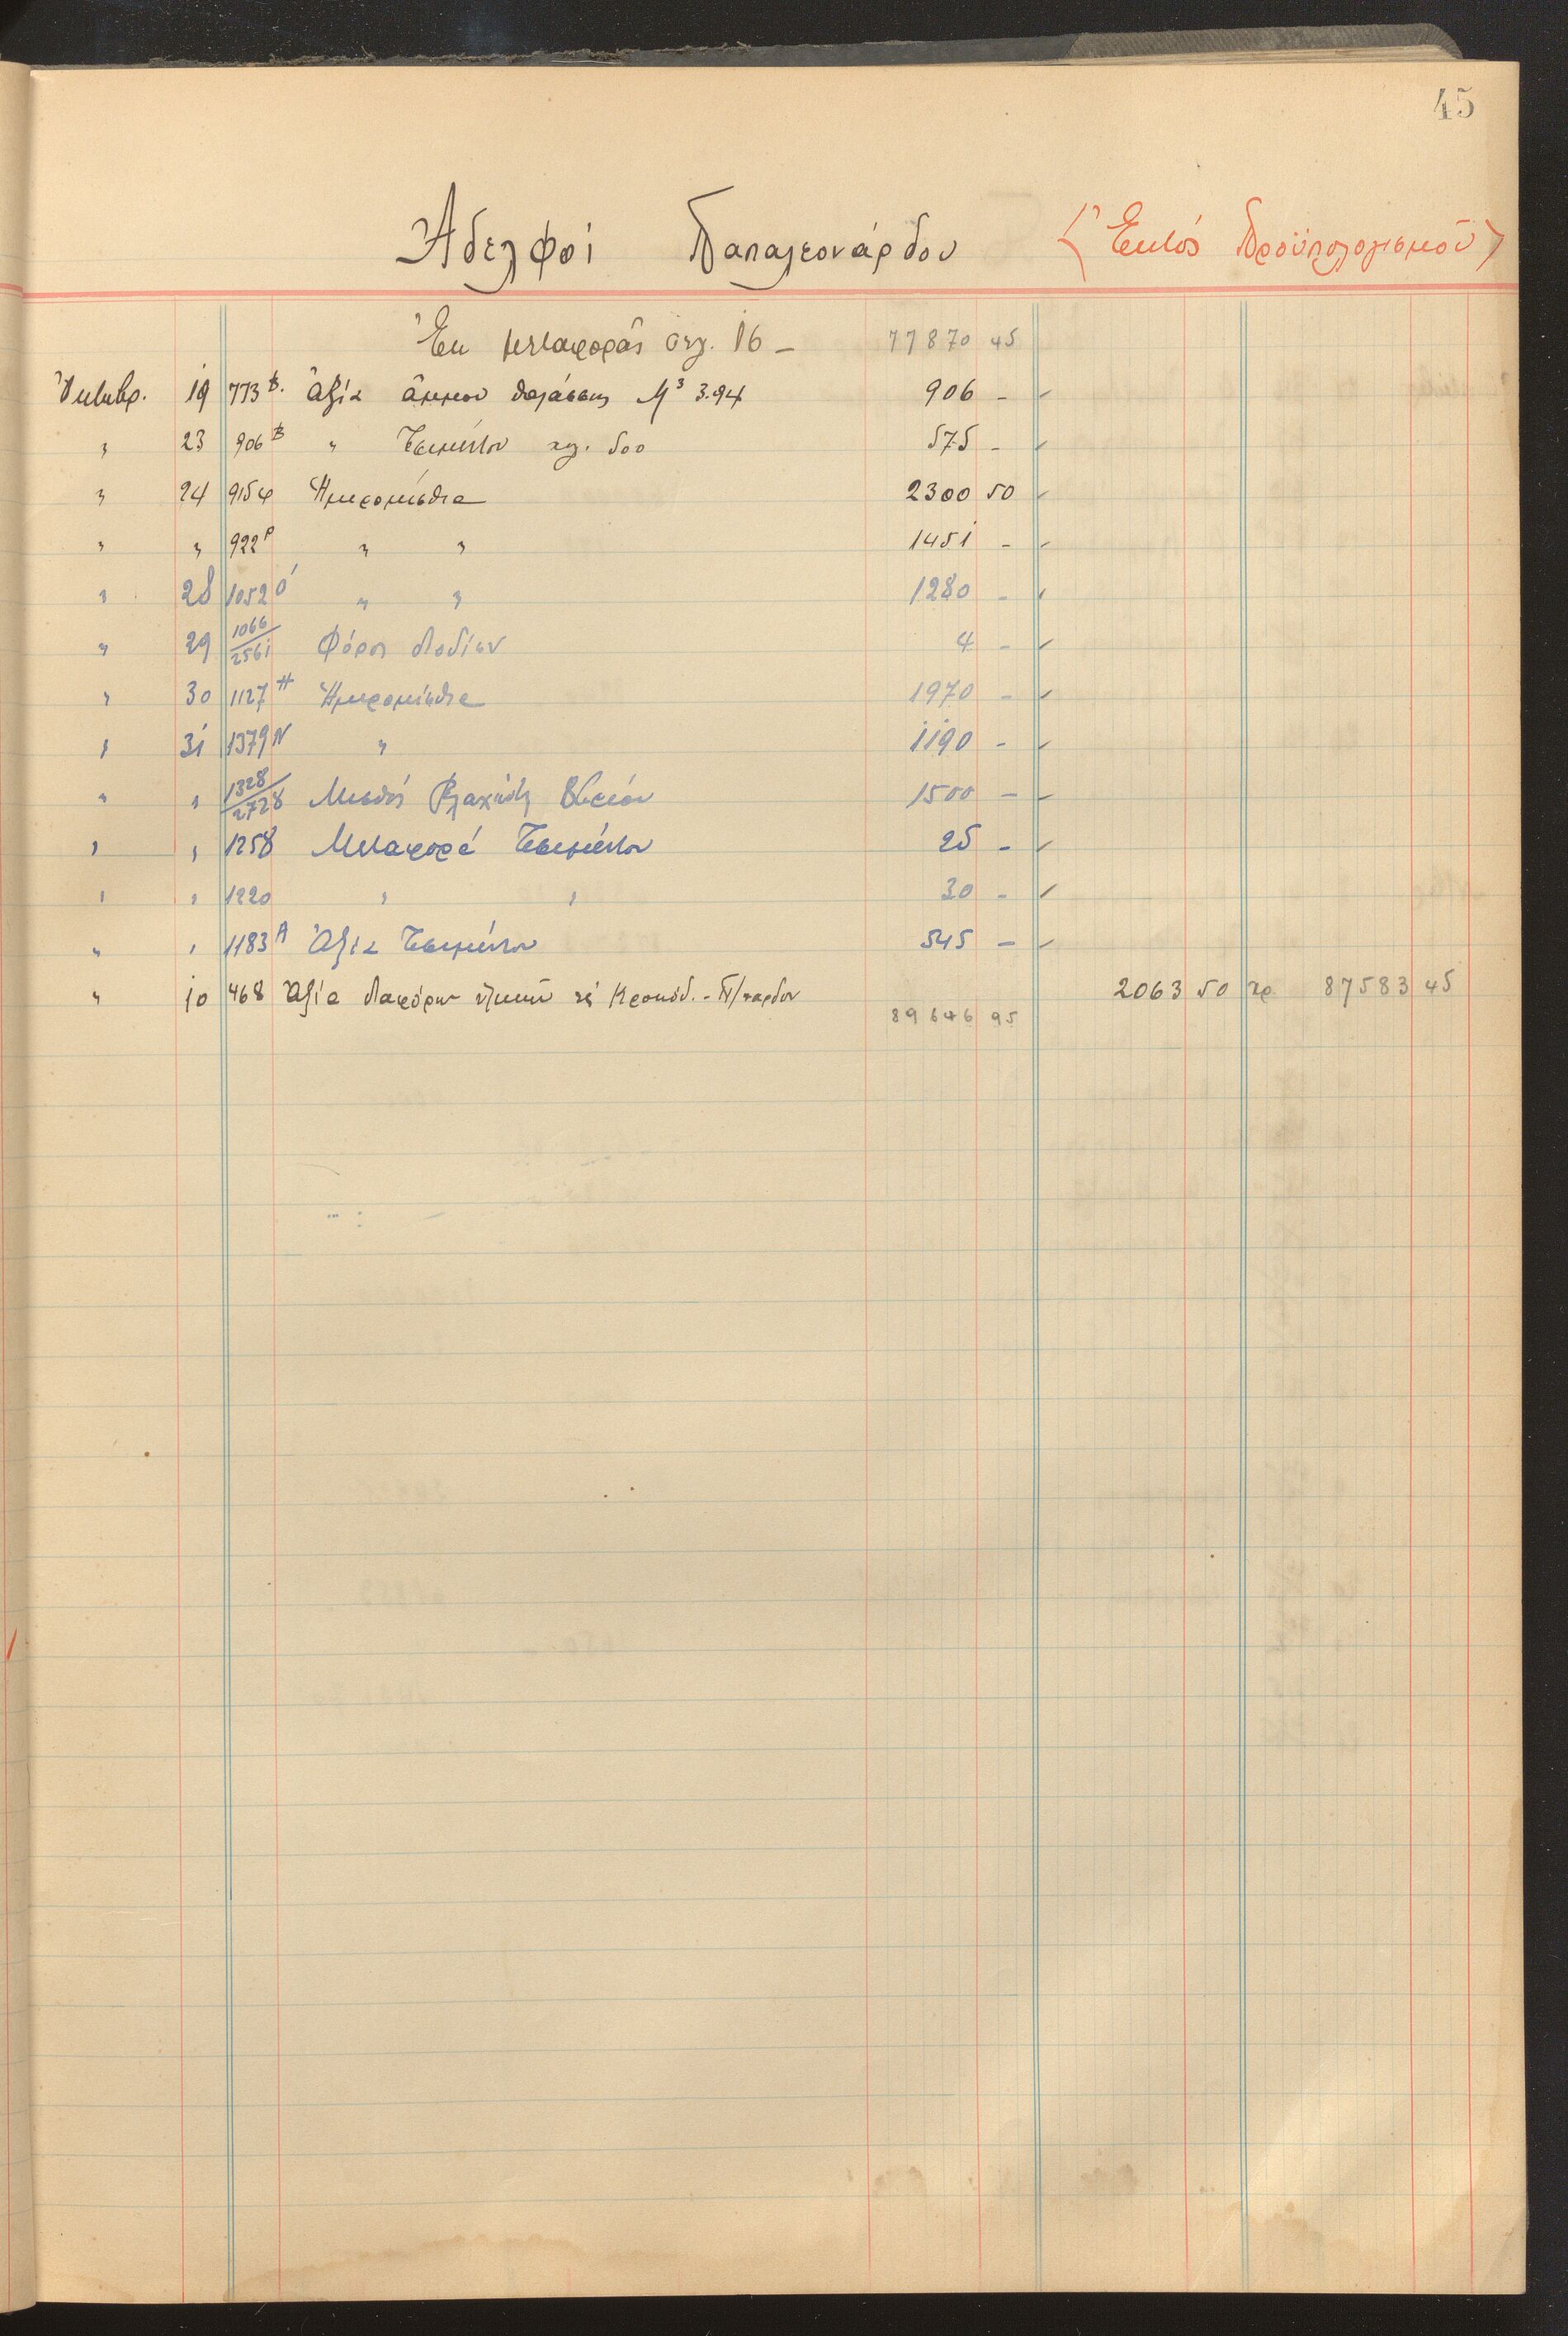 45
Ἀδελφοί Παπαλεονάρδου (Ἐκτός Προϋπολογισμοῦ)
Ἐκ μεταφορᾶς σελ. 16 – 77870 45
Ὀκτωβρ. 19 773 Β. Ἀξία ἄμμου θαλάσσης Μ³ 3.94 906 –
" 23 906 Β " Τσιμέντου χλ. 500 575 –
" 24 915 φ Ἡμερομίσθια 2300 50
" " 922 Ρ " " 1451 –
" 28 1052 Ο " " 1280 –
" 29 1066/2561 Φόρος 4 –
" 30 1127 Η Ἡμερομίσθια 1970 –
" 31 1379 Ν " 1190 –
" " 1328/2728 Μισθός 1500 –
" " 1258 Μεταφορά Τσιμέντου 25 –
" " 1220 " " 30 –
" " 1183 Α Ἀξία Τσιμέντου 545 –
" 10 468 Ἀξία διαφόρων ὑλικῶν 2063 50 χρ 87583 45
89646 95